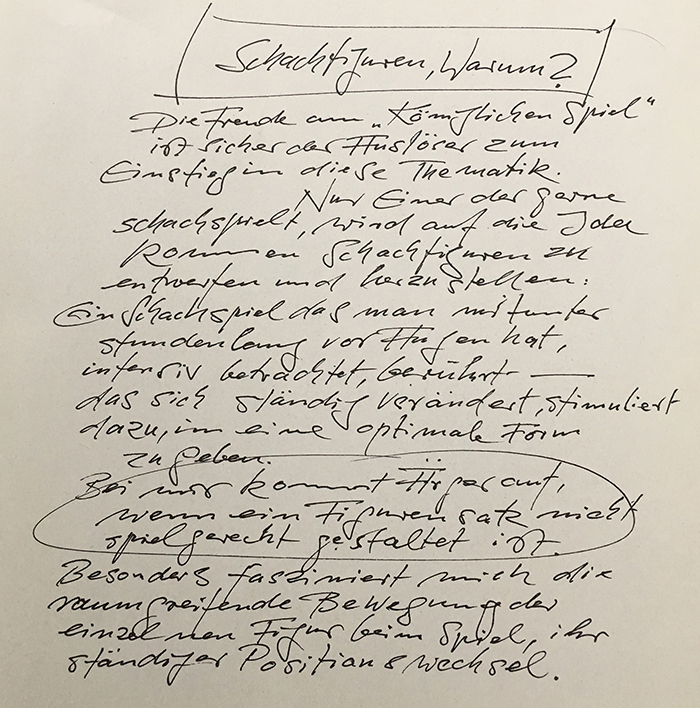 Schachfiguren, Warum?
Die Freude am „Königlichen Spiel"
ist sicher der Auslöser zum
Einstieg in diese Thematik.
Nur Einer der gerne
schachspielt, wird auf die Idee
kommen Schachfiguren zu
entwerfen und herzustellen:
Ein Schachspiel das man mitunter
stundenlang vor Augen hat,
intensiv betrachtet, berührt —
das sich ständig verändert, stimuliert
dazu, im eine optimale Form
zu geben.
Bei mir kommt Ärger auf,
wenn ein Figurensatz nicht
spielgerecht gestaltet ist.
Besonders fasziniert mich die
raumgreifende Bewegung der
einzelnen Figur beim Spiel, ihr
ständiger Positionswechsel.